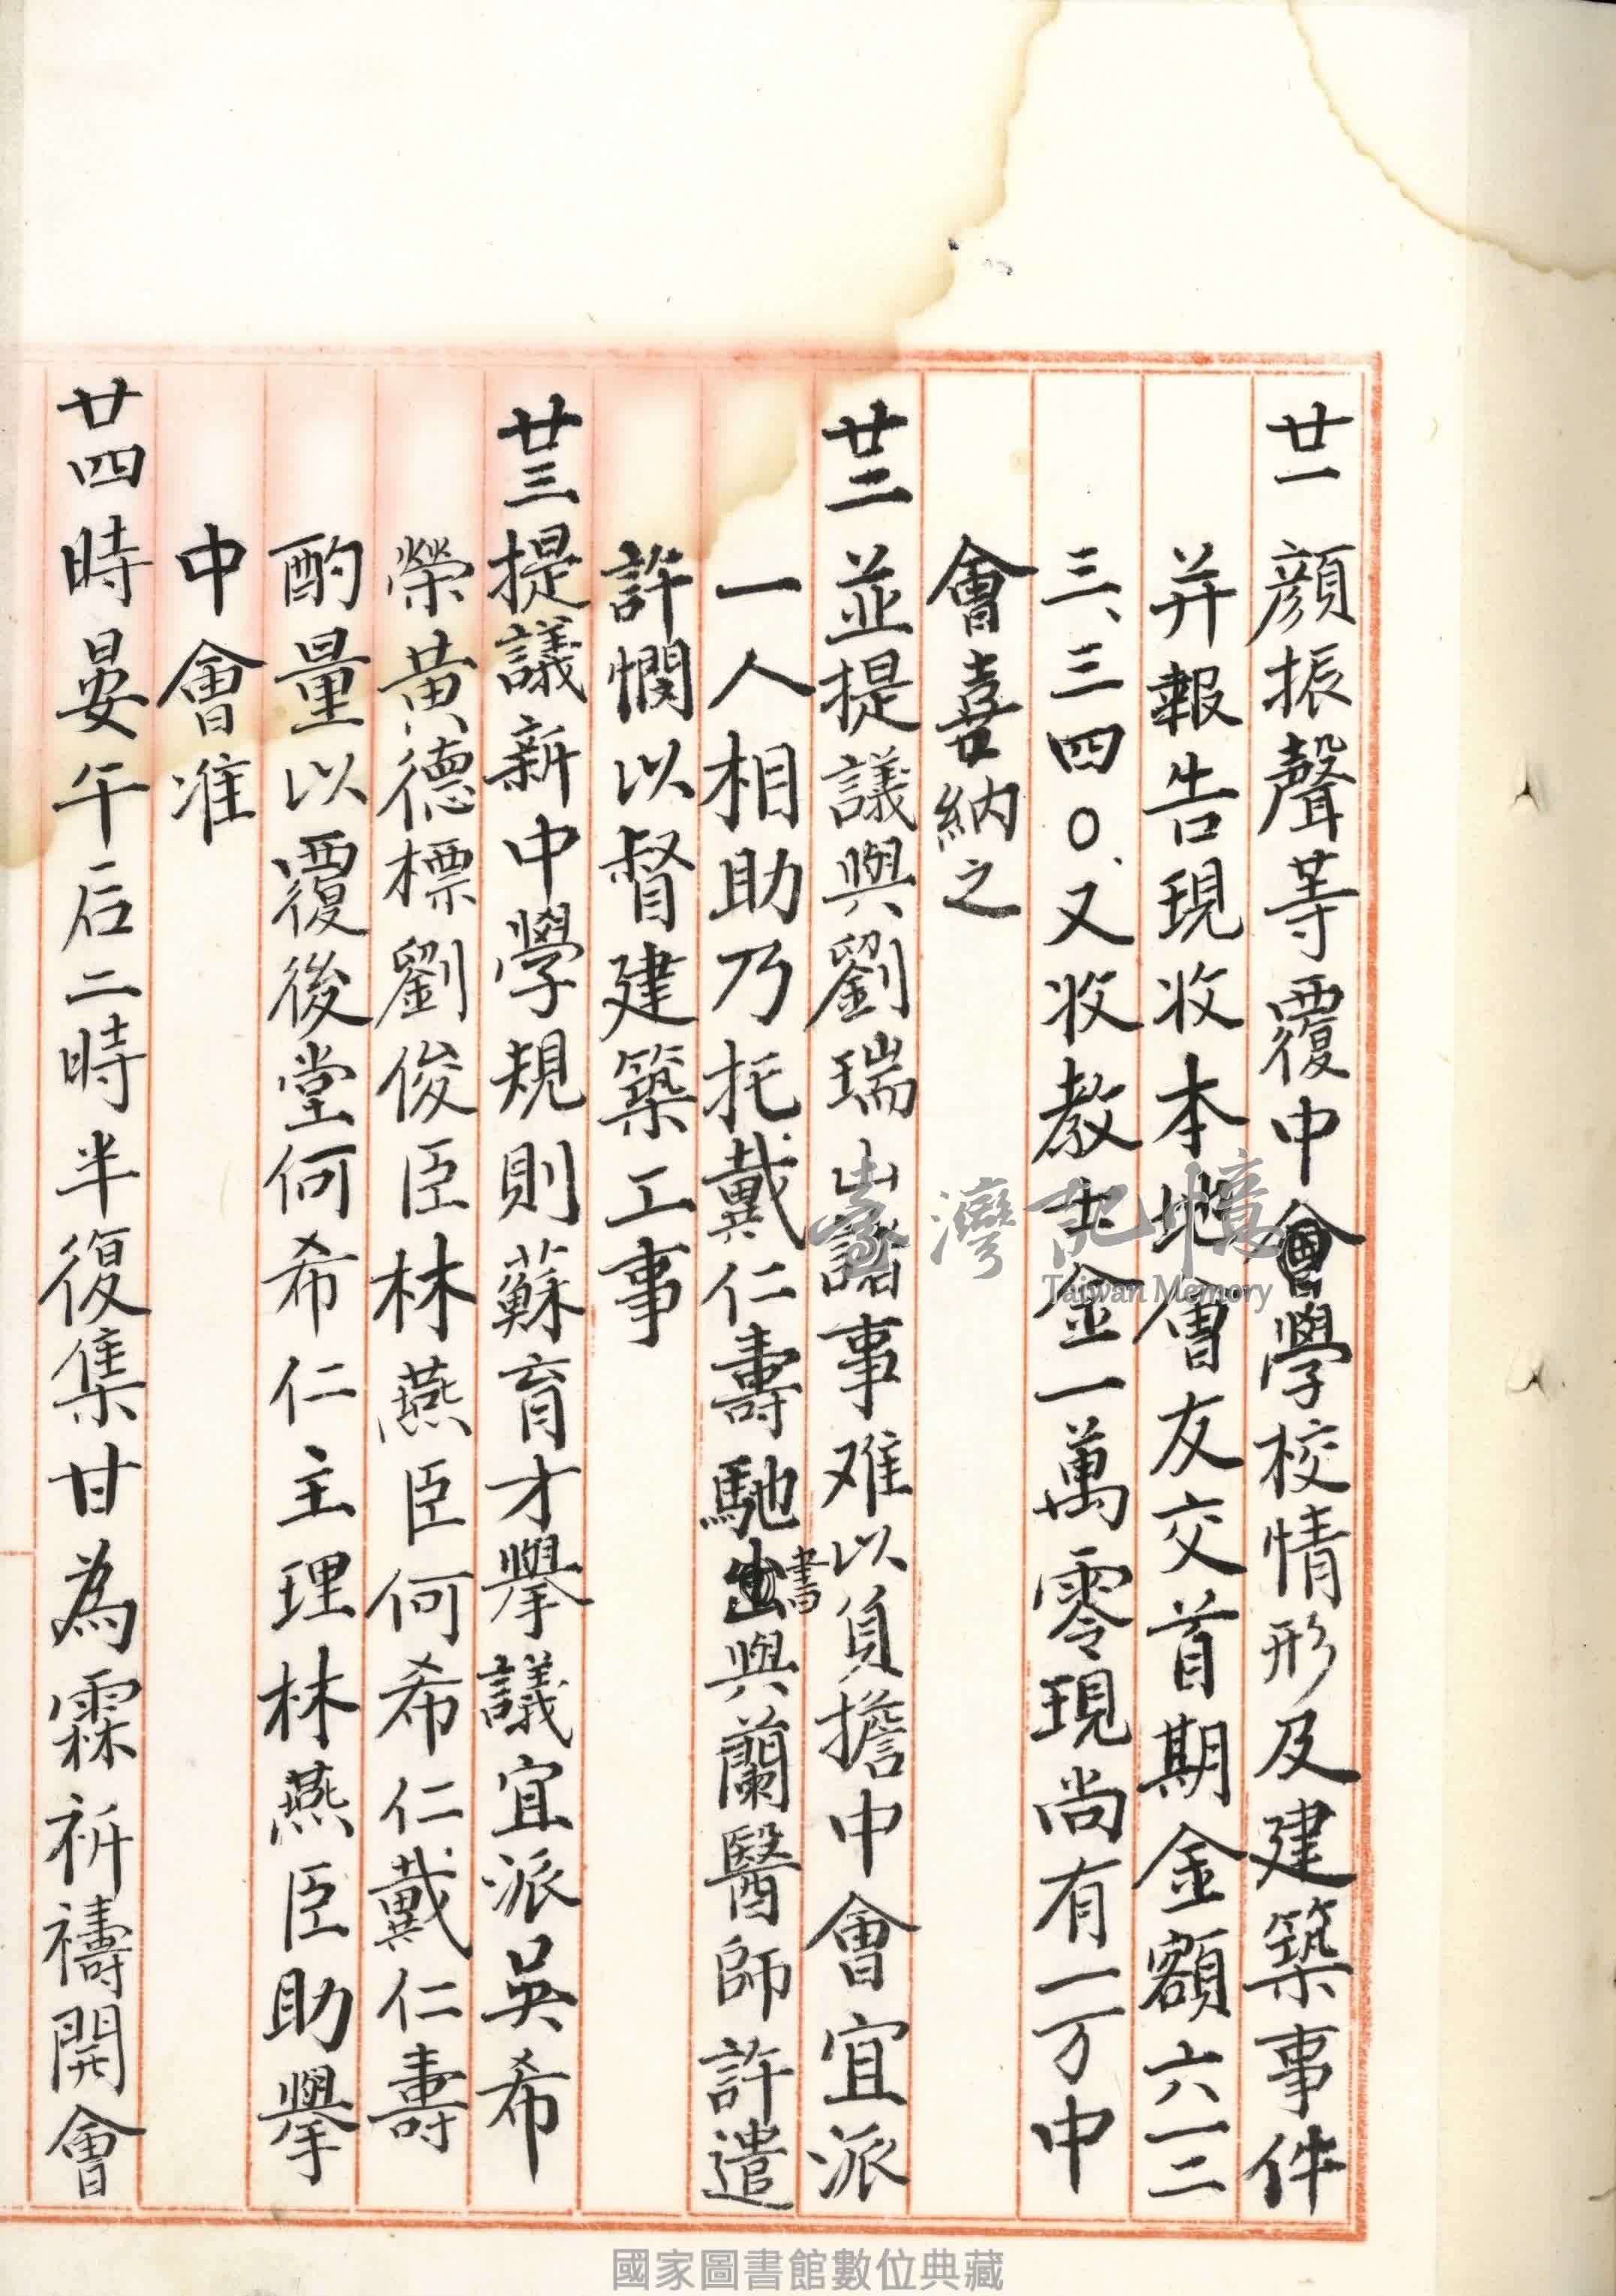 廿一 顏振聲等覆中會學校情形及建築事件
并報告現收本地會友交首期金額六一二
三、三四〇、又收教士金一萬零現尚有一万中
會喜納之
廿二 並提議與劉瑞山諸事难以負擔中會宜派
一人相助乃托戴仁壽馳書與蘭醫師許遣
許憫以督建築工事
廿三 提議新中學規則蘇育才舉議宜派吳希
榮黃德標劉俊臣林燕臣何希仁戴仁壽
酌量以覆後堂何希仁主理林燕臣助舉
中會准
廿四 時晏午后二時半復集甘為霖祈禱開會
臺灣記憶
Taiwan Memory
國家圖書館數位典藏